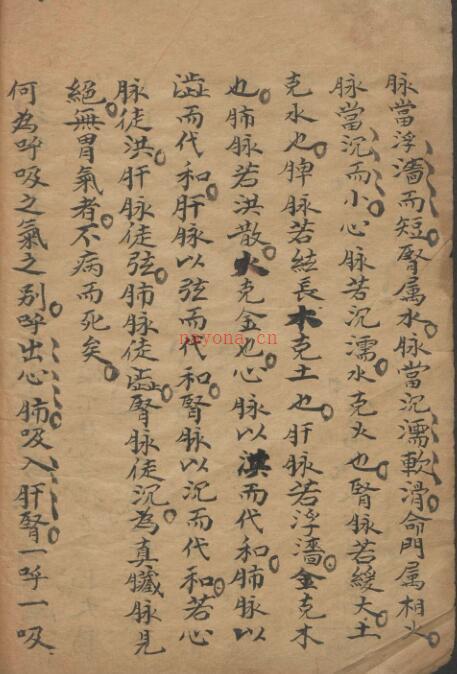 脉當浮濇而短腎属水脉當沉濡軟滑命門属相火
脉當沉而小心脉若沉濡水克火也腎脉若緩大土
克水也脾脉若结長木克土也肝脉若浮濇金克木
也肺脉若洪散火克金也心脉以洪而代和肺脉以
澁而代和肝脉以弦而代和腎脉以沉而代和若心
脉徒洪肝脉徒弦肺脉徒澁腎脉徒沉為真臟脉見
絕無胃氣者不病而死矣
何為呼吸之氣之别呼出心肺吸入肝腎一呼一吸
nayona.cn